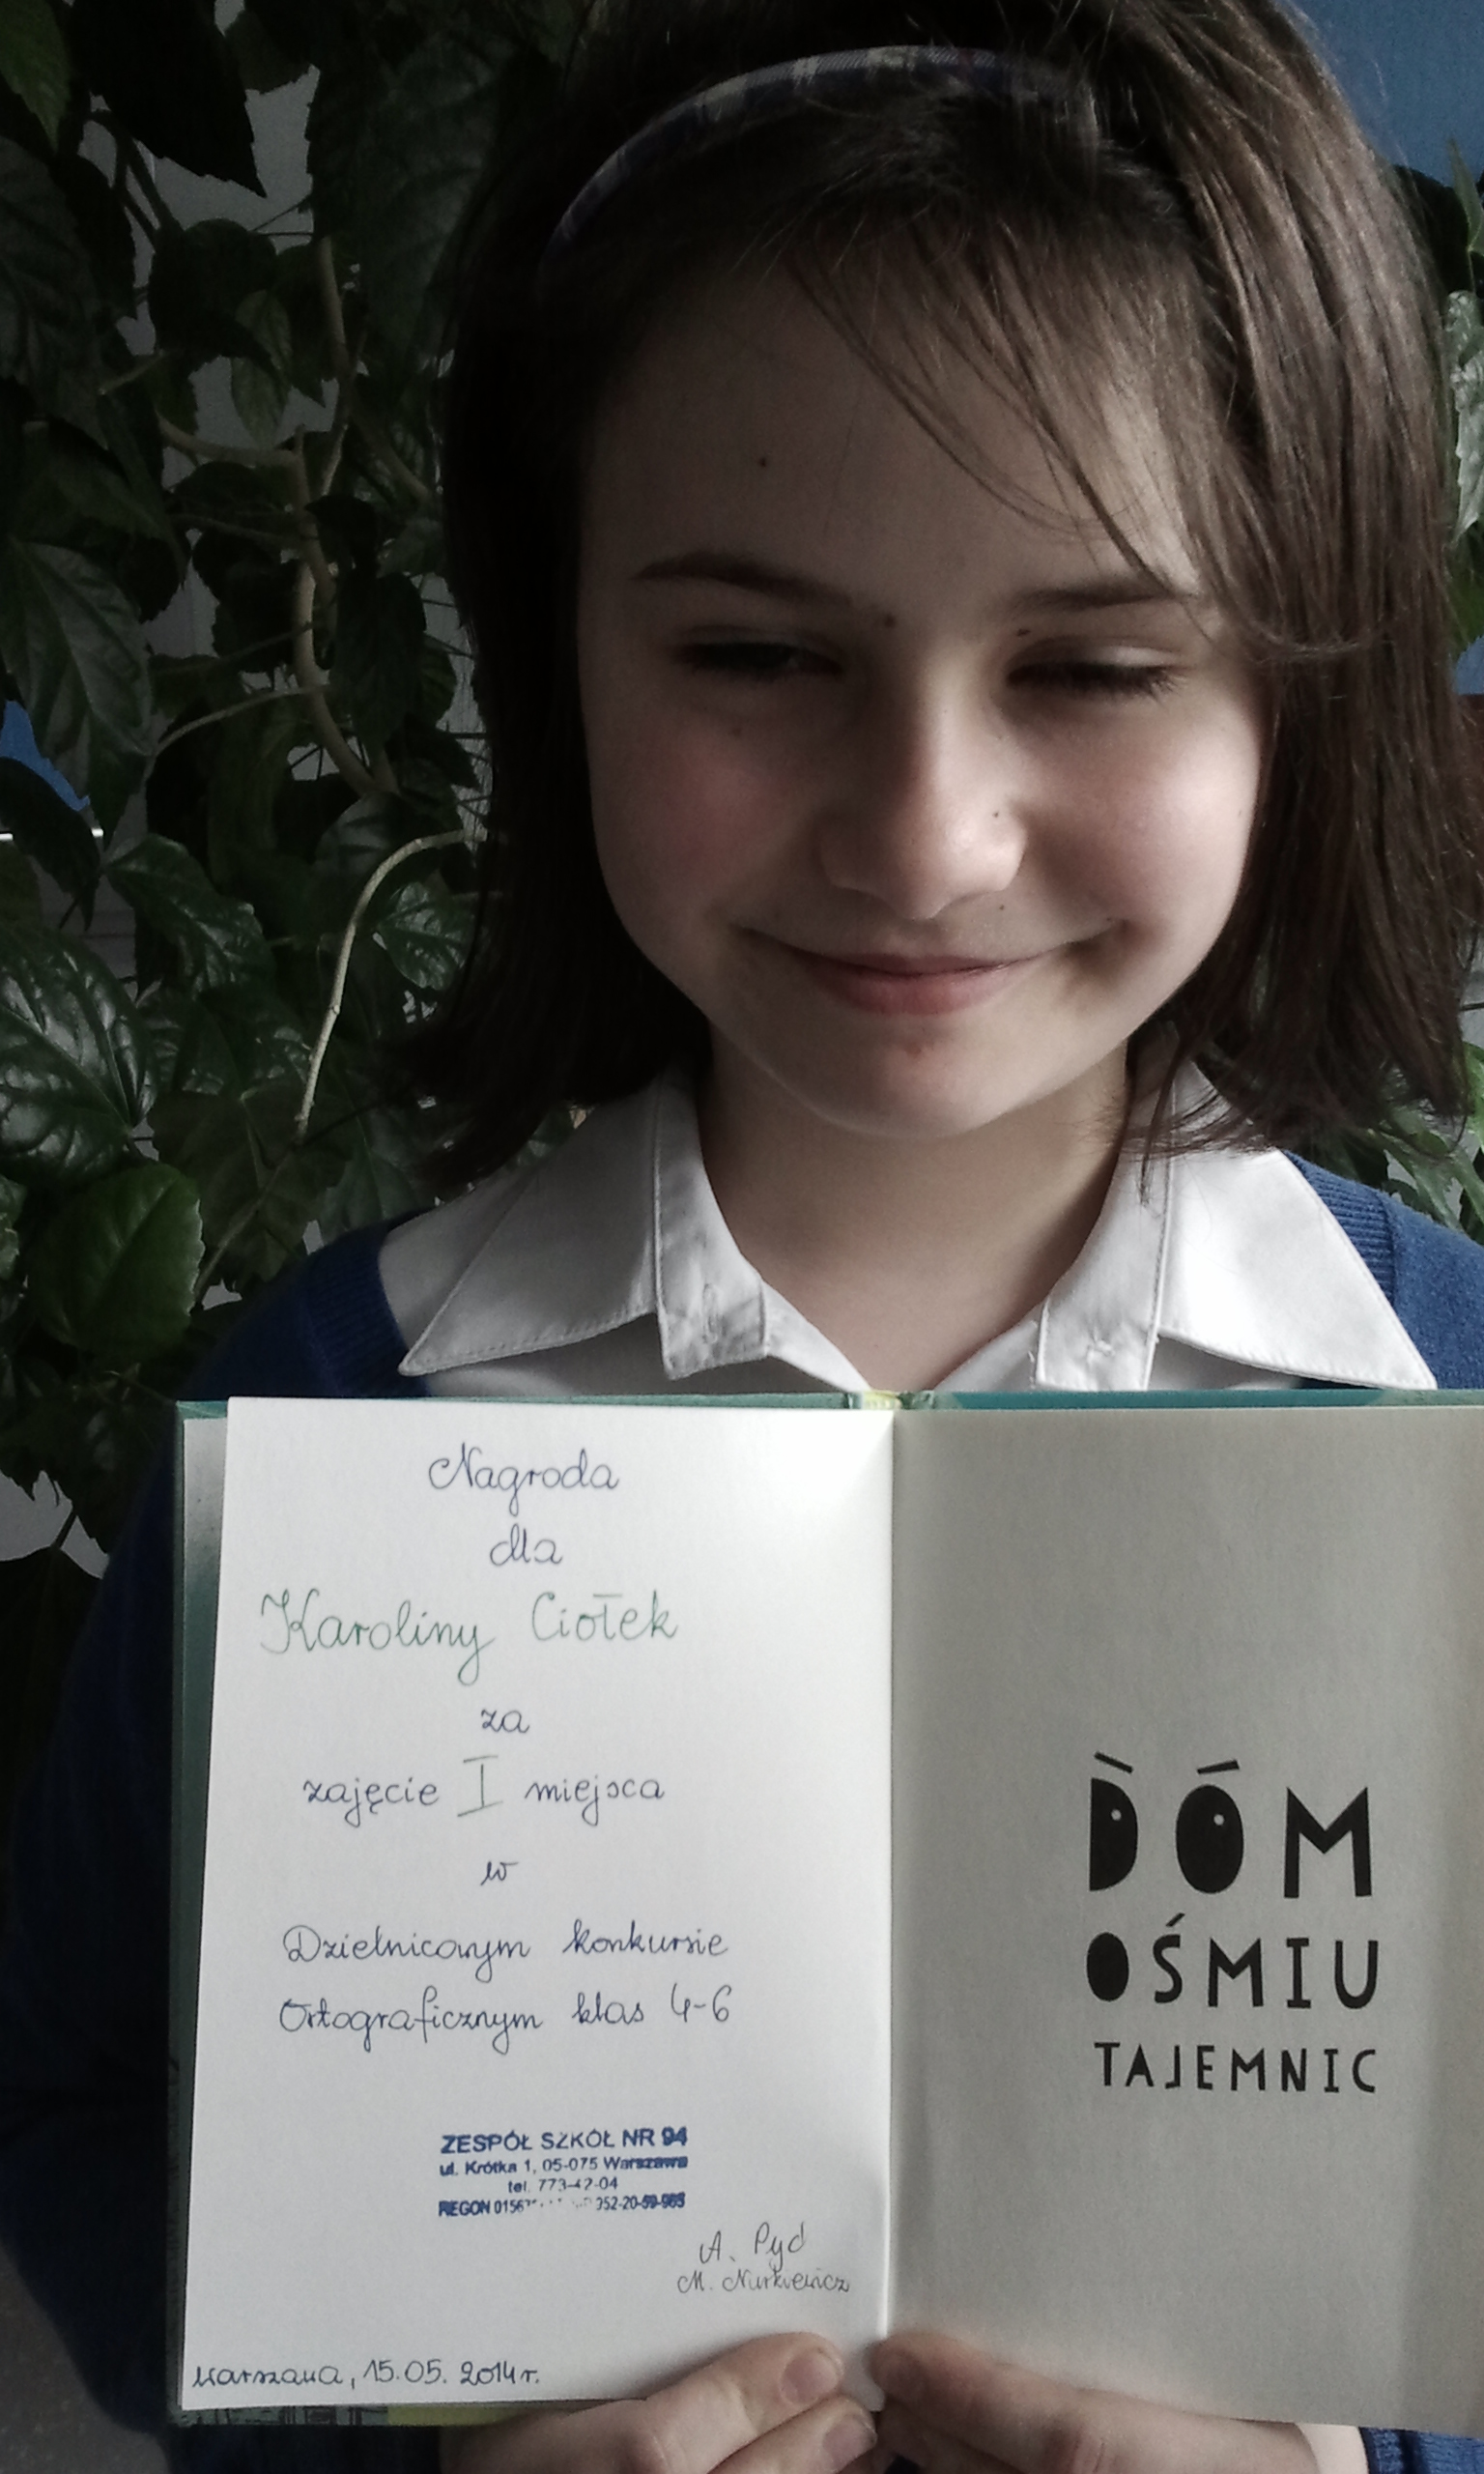 Nagroda
dla
Karoliny Ciołek
za
zajęcie I miejsca
w
Dzielnicowym konkursie
Ortograficznym klas 4-6
ZESPÓŁ SZKÓŁ NR 94
ul. Krótka 1, 05-075 Warszawa
tel. 773-42-04
REGON
A. Pyd
M. Nurkiewicz
Warszawa, 15.05. 2014r.
DÓM
OŚMIU
TAJEMNIC